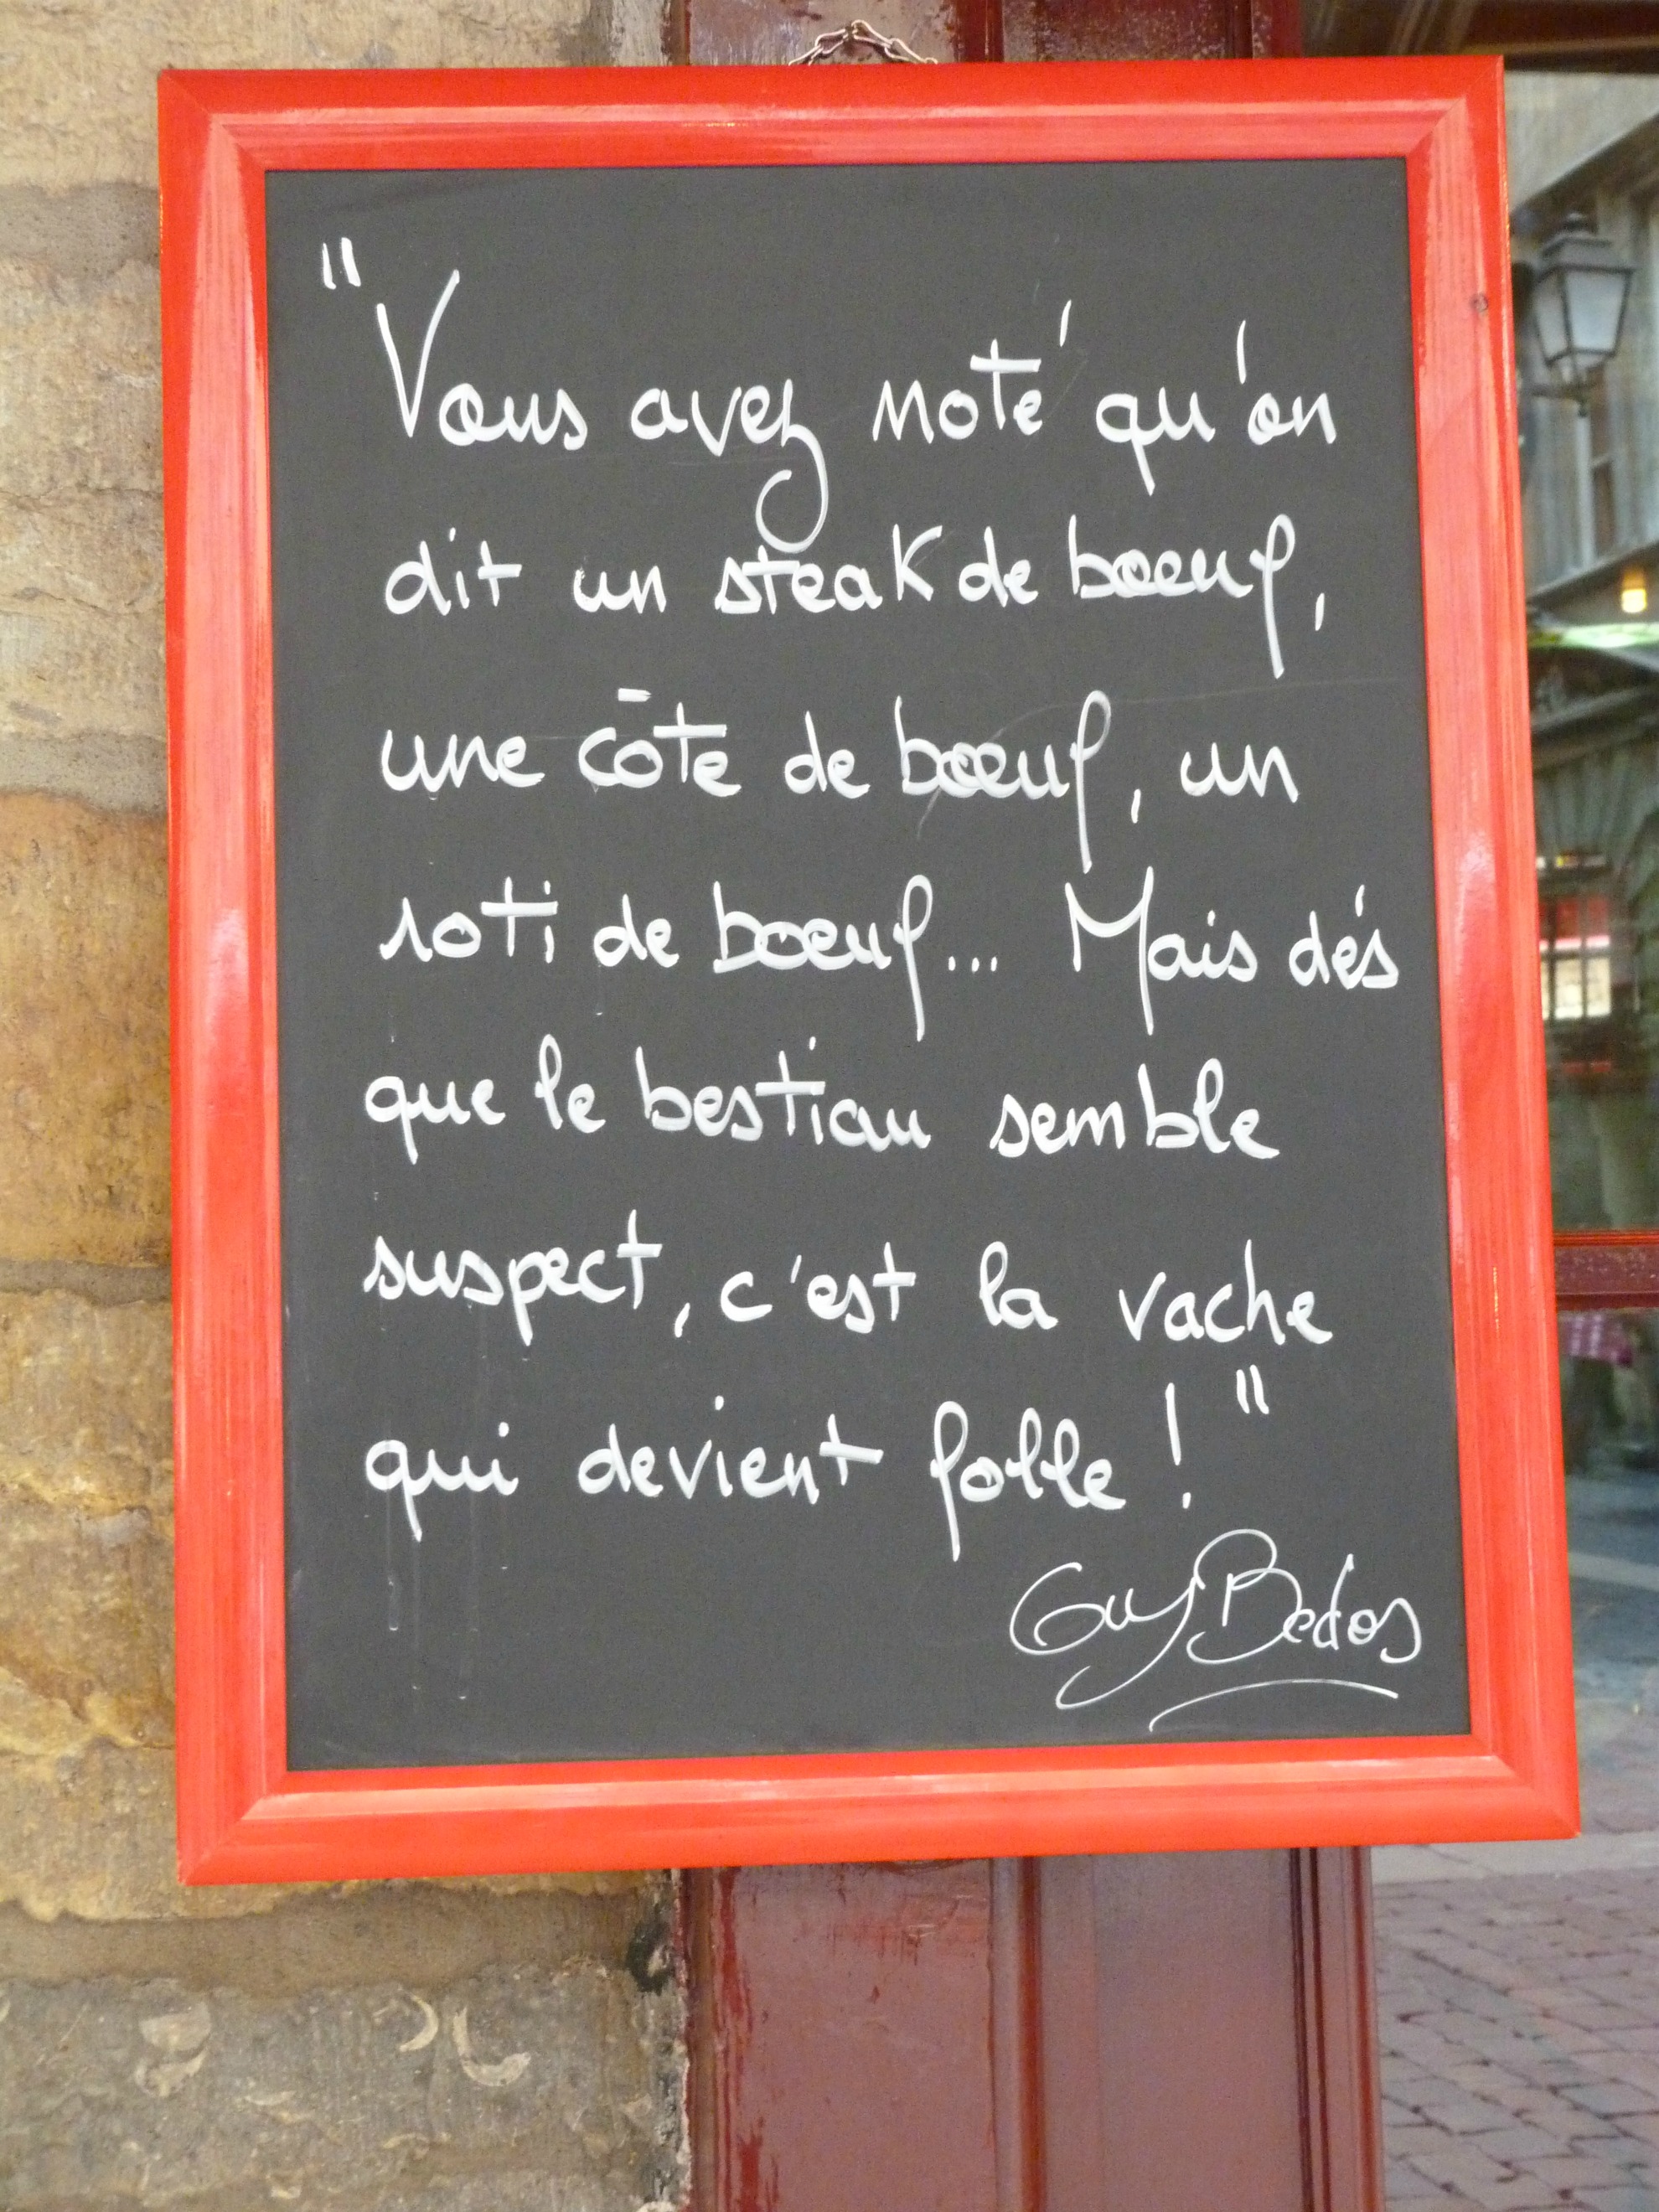 "Vous avez noté qu'on
dit un steak de bœuf,
une côte de bœuf, un
roti de bœuf... Mais dés
que le bestiau semble
suspect, c'est la vache
qui devient folle !"
Guy Bedos